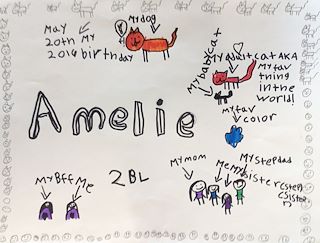 May
20th My
2014 birthday
My dog
My baby cat
My adult cat AKA
My fav
thing
in the
world!
Amelie
My fav
color
My Bff
Me
2BL
My mom
Me
My stepdad
sister (step
(sister